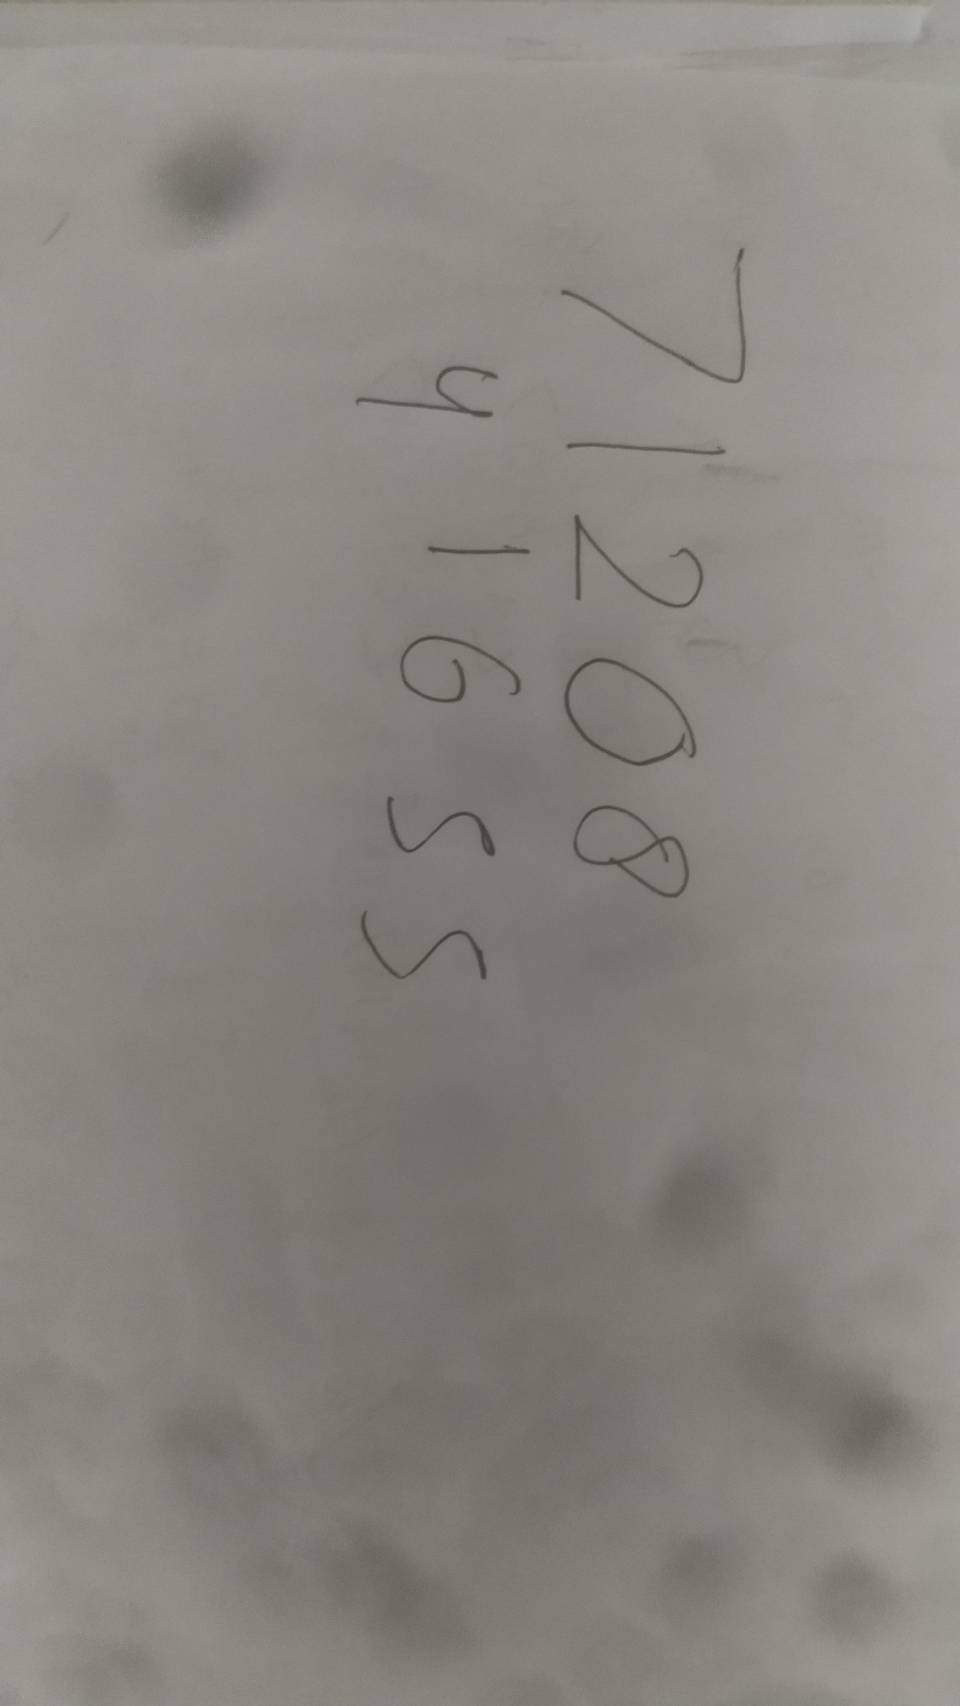 71208
41655